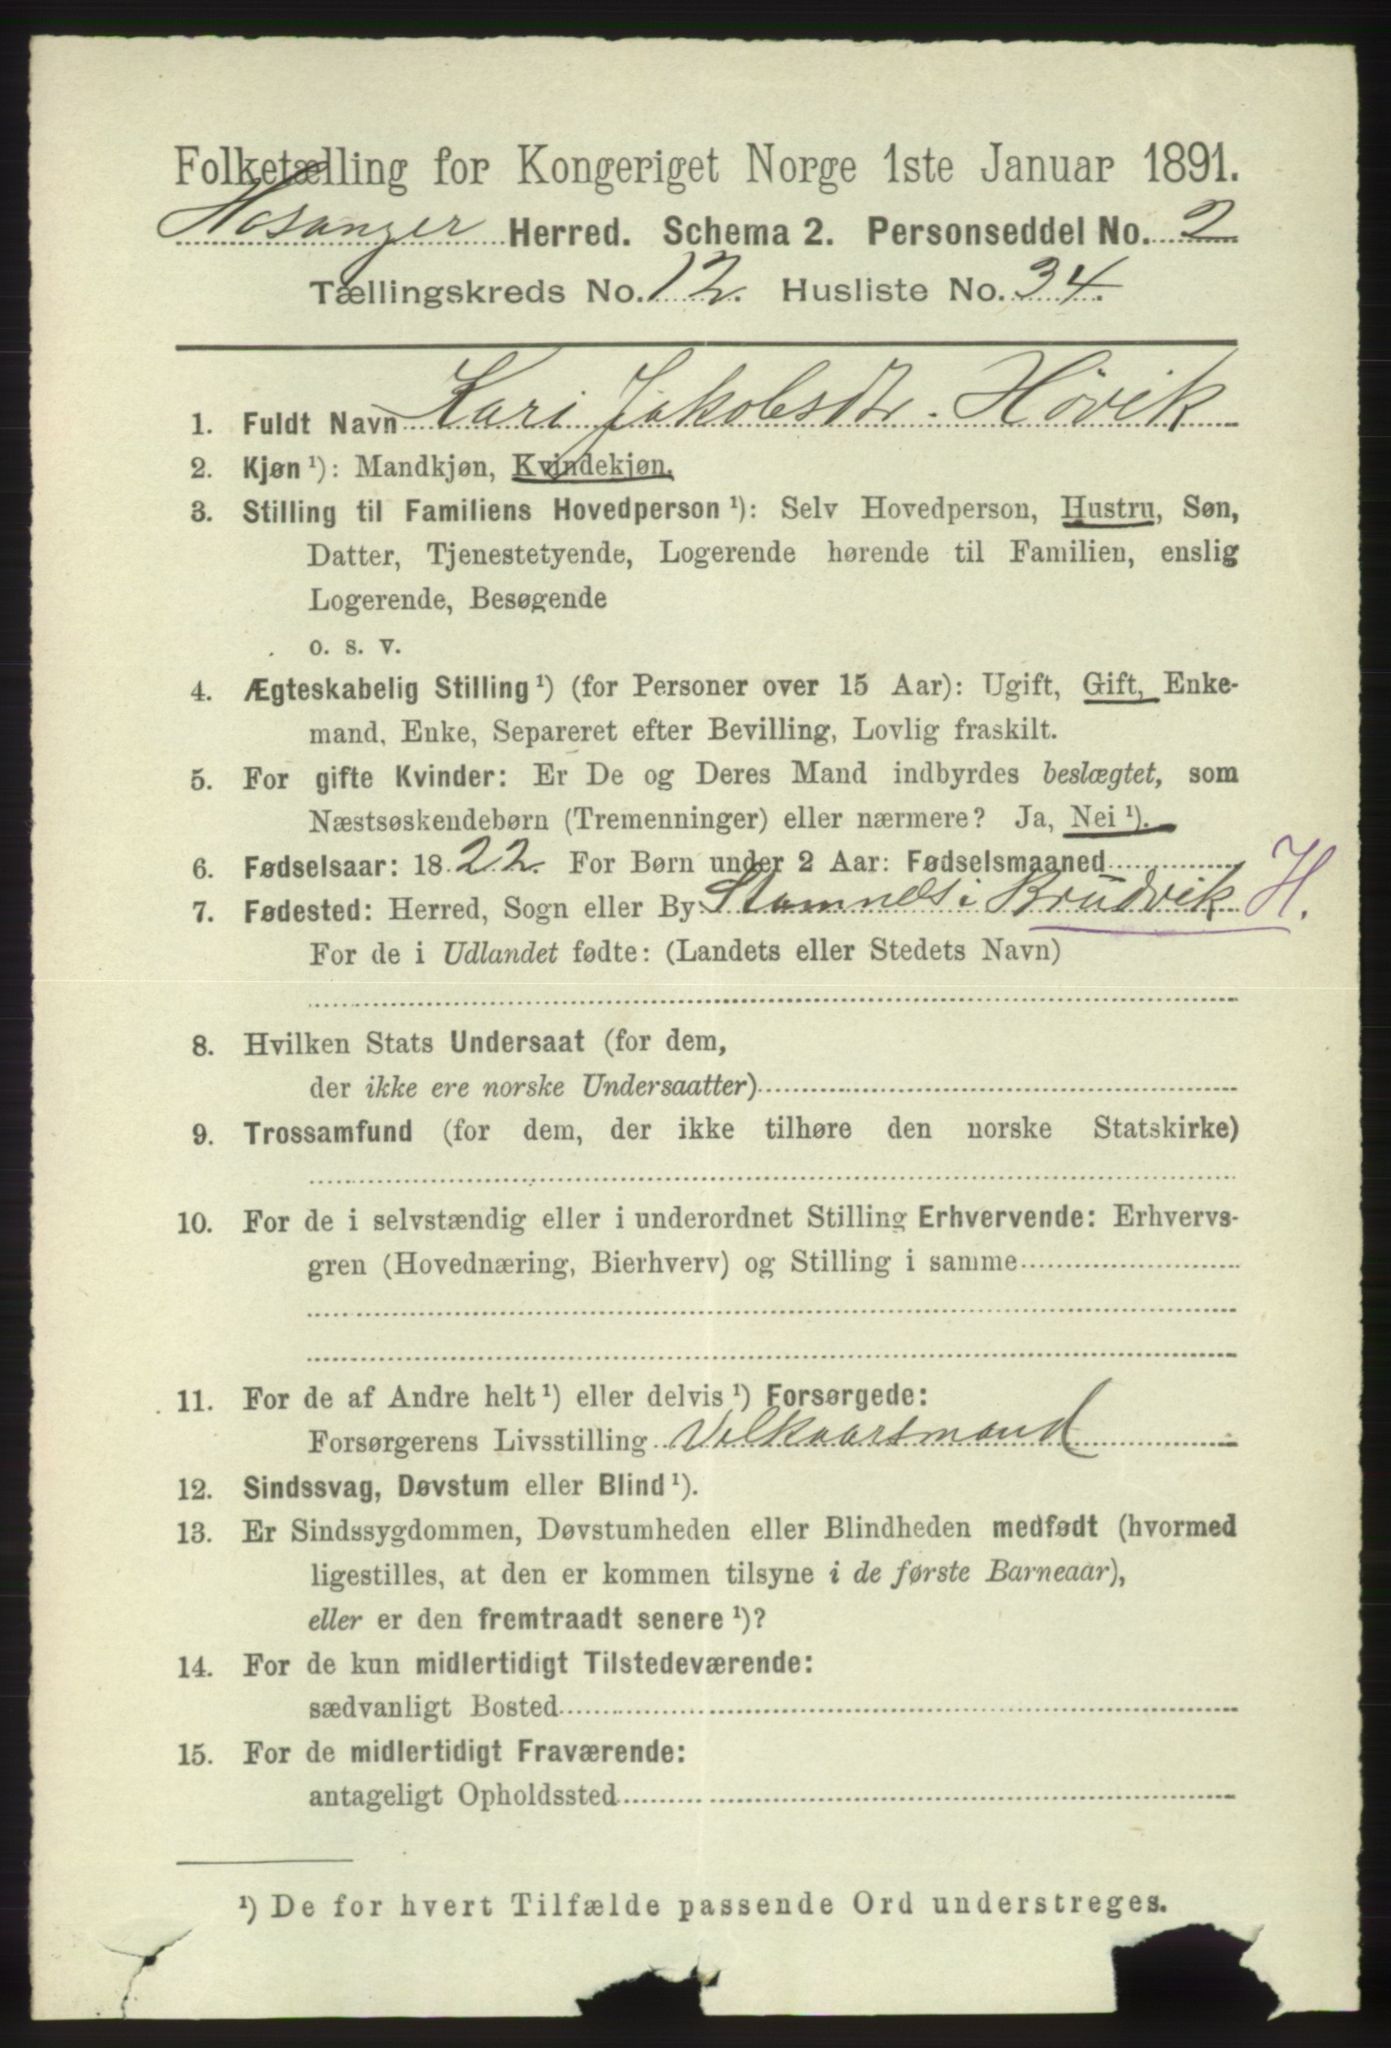 Folketælling for Kongeriget Norge 1ste Januar 1891.
Hosanger Herred. Schema 2. Personseddel No. 2
Tællingskreds No. 12. Husliste No. 34.
1. Fuldt Navn Kari Jakobsdtr. Høvik
2. Kjøn ¹): Mandkjøn, Kvindekjøn.
3. Stilling til Familiens Hovedperson ¹): Selv Hovedperson, Hustru, Søn,
Datter, Tjenestetyende, Logerende hørende til Familien, enslig
Logerende, Besøgende
o. s. v.
4. Ægteskabelig Stilling ¹) (for Personer over 15 Aar): Ugift, Gift, Enke-
mand, Enke, Separeret efter Bevilling, Lovlig fraskilt.
5. For gifte Kvinder: Er De og Deres Mand indbyrdes beslægtet, som
Næstsøskendebørn (Tremenninger) eller nærmere? Ja, Nei ¹).
6. Fødselsaar: 1822. For Børn under 2 Aar: Fødselsmaaned
7. Fødested: Herred, Sogn eller By Stamnes i Brudvik H.
For de i Udlandet fødte: (Landets eller Stedets Navn)
8. Hvilken Stats Undersaat (for dem,
der ikke ere norske Undersaatter)
9. Trossamfund (for dem, der ikke tilhøre den norske Statskirke)
10. For de i selvstændig eller i underordnet Stilling Erhvervende: Erhvervs-
gren (Hovednæring, Bierhverv) og Stilling i samme
11. For de af Andre helt ¹) eller delvis ¹) Forsørgede:
Forsørgerens Livsstilling Velkaarsmand
12. Sindssvag, Døvstum eller Blind ¹).
13. Er Sindssygdommen, Døvstumheden eller Blindheden medfødt (hvormed
ligestilles, at den er kommen tilsyne i de første Barneaar),
eller er den fremtraadt senere ¹)?
14. For de kun midlertidigt Tilstedeværende:
sædvanligt Bosted
15. For de midlertidigt Fraværende:
antageligt Opholdssted
¹) De for hvert Tilfælde passende Ord understreges.